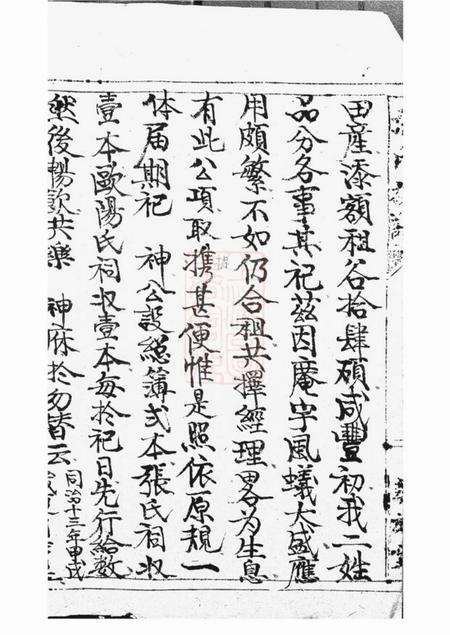 田產漆額租谷拾肆碩咸豐初我二姓
品分各事其祀茲因庵宇風蟻大盛應
用頗繁不如仍合租共擇經理畧为生息
有此公項取携甚便惟是照依原規一
体届期祀 神公設總簿弍本張氏祠収
壹本歐陽氏祠収壹本每於祀日先行給数
然後暢飲共樂 神庥於勿替云 同治十三年甲戌